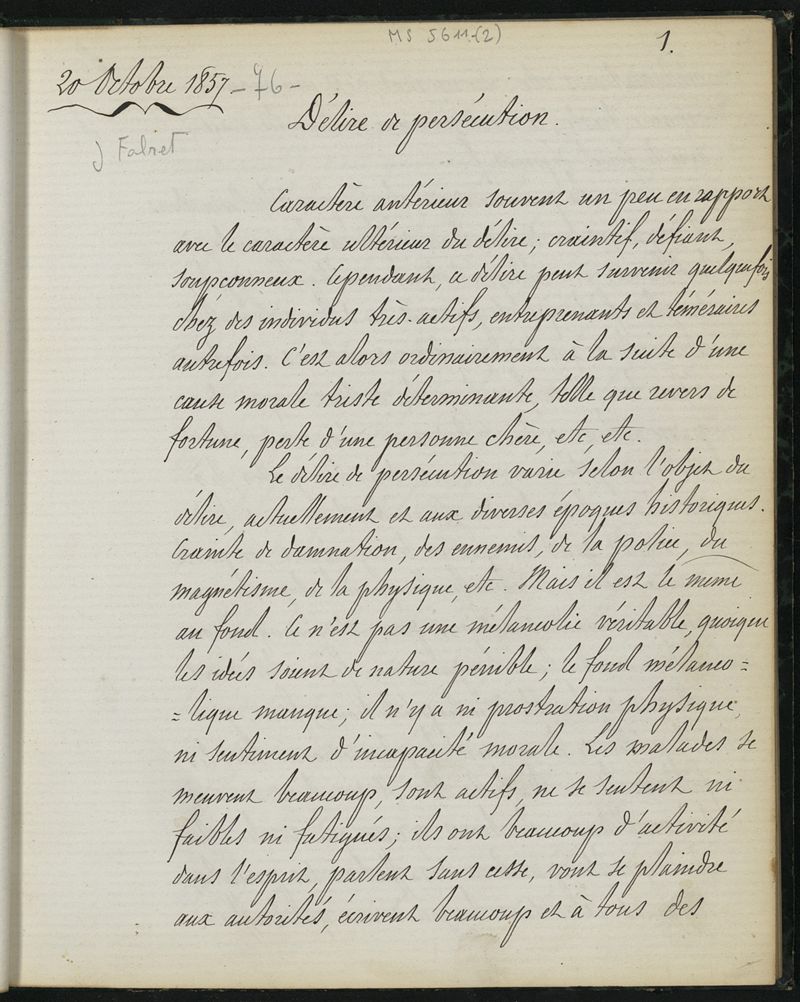 MS 5611-(2)
1.
20 Octobre 1857 - 76 -
J Falret
Délire de persécution.
Caractère antérieur souvent un peu en rapport
avec le caractère ultérieur du délire; craintif, défiant,
soupçonneux. Cependant, ce délire peut survenir quelquefois
chez des individus très-actifs, entreprenants et téméraires
autrefois. C'est alors ordinairement à la suite d'une
cause morale triste déterminante, telle que revers de
fortune, perte d'une personne chère, etc, etc.
Le délire de persécution varie selon l'objet du
délire, actuellement et aux diverses époques historiques.
Crainte de damnation, des ennemis, de la police, du
magnétisme, de la physique, etc. Mais il est le même
au fond. Ce n'est pas une mélancolie véritable, quoique
les idées soient de nature pénible; le fond mélanco=
=lique manque; il n'y a ni prostration physique,
ni sentiment d'incapacité morale. Les malades se
meuvent beaucoup, sont actifs, ne se sentent ni
faibles ni fatigués; ils ont beaucoup d'activité
dans l'esprit, parlent sans cesse, vont se plaindre
aux autorités, écrivent beaucoup et à tous des